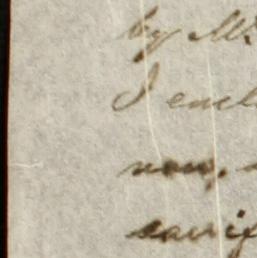 by Mr
I encl
now,